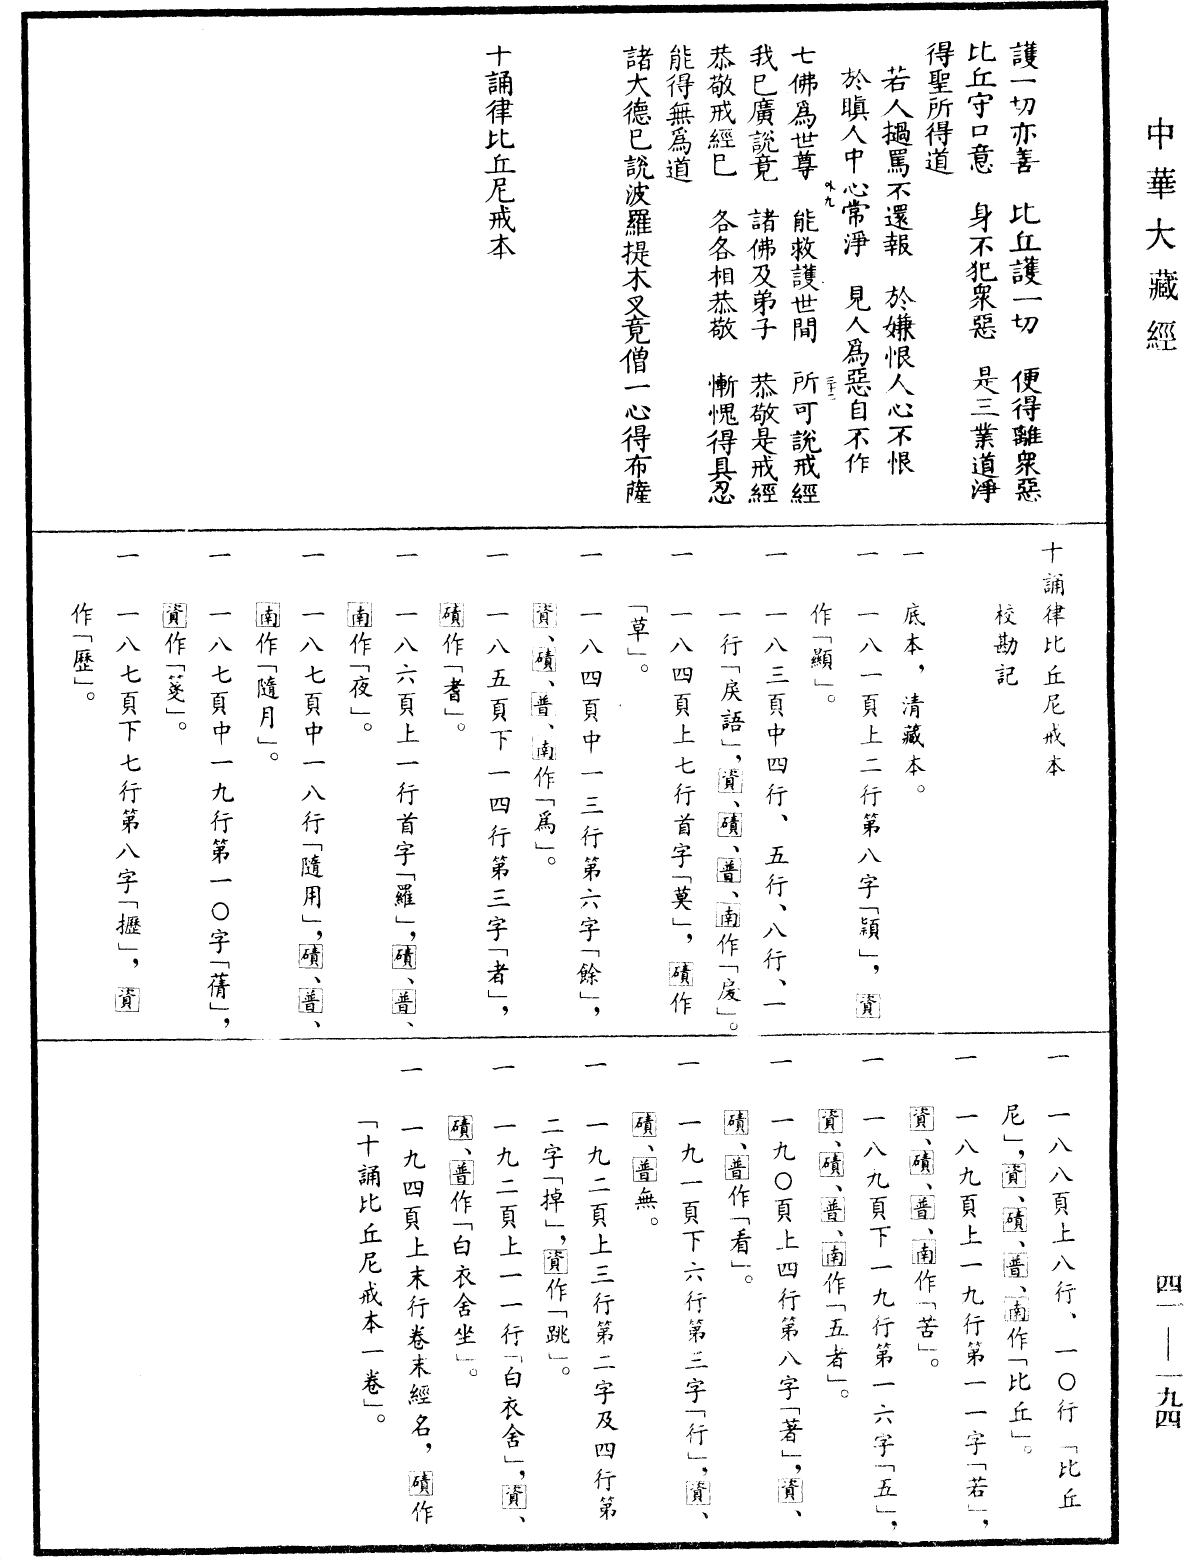 中華大藏經
護一切亦善　比丘護一切　便得離眾惡
比丘守口意　身不犯眾惡　是三業道淨
得聖所得道
若人撾罵不還報　於嫌恨人心不恨
於瞋人中心常淨　見人爲惡自不作
七佛爲世尊　能救護世間　所可說戒經
我已廣說竟　諸佛及弟子　恭敬是戒經
恭敬戒經已　各各相恭敬　慚愧得具忍
能得無爲道
諸大德已說波羅提木叉竟僧一心得布薩
十誦律比丘尼戒本
十誦律比丘尼戒本
校勘記
一　底本，清藏本。
一　一八一頁上二行第八字「頴」，資
作「顯」。
一　一八三頁中四行、五行、八行、一
一行「戾語」，資、磧、普、南作「㑦」。
一　一八四頁上七行首字「莫」，磧作
「草」。
一　一八四頁中一三行第六字「餘」，
資、磧、普、南作「爲」。
一　一八五頁下一四行第三字「者」，
磧作「耆」。
一　一八六頁上一行首字「羅」，磧、普、
南作「夜」。
一　一八七頁中一八行「隨用」，磧、普、
南作「隨月」。
一　一八七頁中一九行第一〇字「蒨」，
資作「䔰」。
一　一八七頁下七行第八字「攊」，資
作「歷」。
一　一八八頁上八行、一〇行「比丘
尼」，資、磧、普、南作「比丘」。
一　一八九頁上一九行第一一字「若」，
資、磧、普、南作「苦」。
一　一八九頁下一九行第一六字「五」，
資、磧、普、南作「五者」。
一　一九〇頁上四行第八字「著」，資、
磧、普作「看」。
一　一九一頁下六行第三字「行」，資、
磧、普無。
一　一九二頁上三行第二字及四行第
二字「掉」，資作「跳」。
一　一九二頁上一一行「白衣舍」，資、
磧、普作「白衣舍坐」。
一　一九四頁上末行卷末經名，磧作
「十誦比丘尼戒本一卷」。
四一—一九四